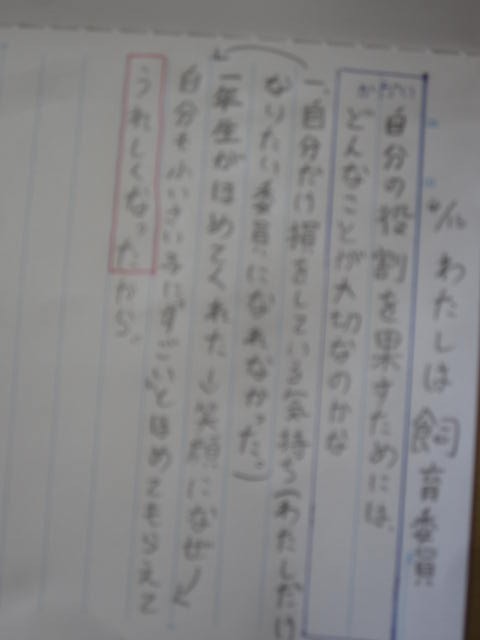 4/12 わたしは飼育委員
かだい
自分の役割を果すためには、
どんなことが大切なのかな
一、自分だけ損をしている気持ち(わたしだけ
なりたい委員になれなかった。)
一年生がほめてくれた→笑顔になぜ
自分も小いさい子に「すごい」とほめてもらえて
うれしくなったから。